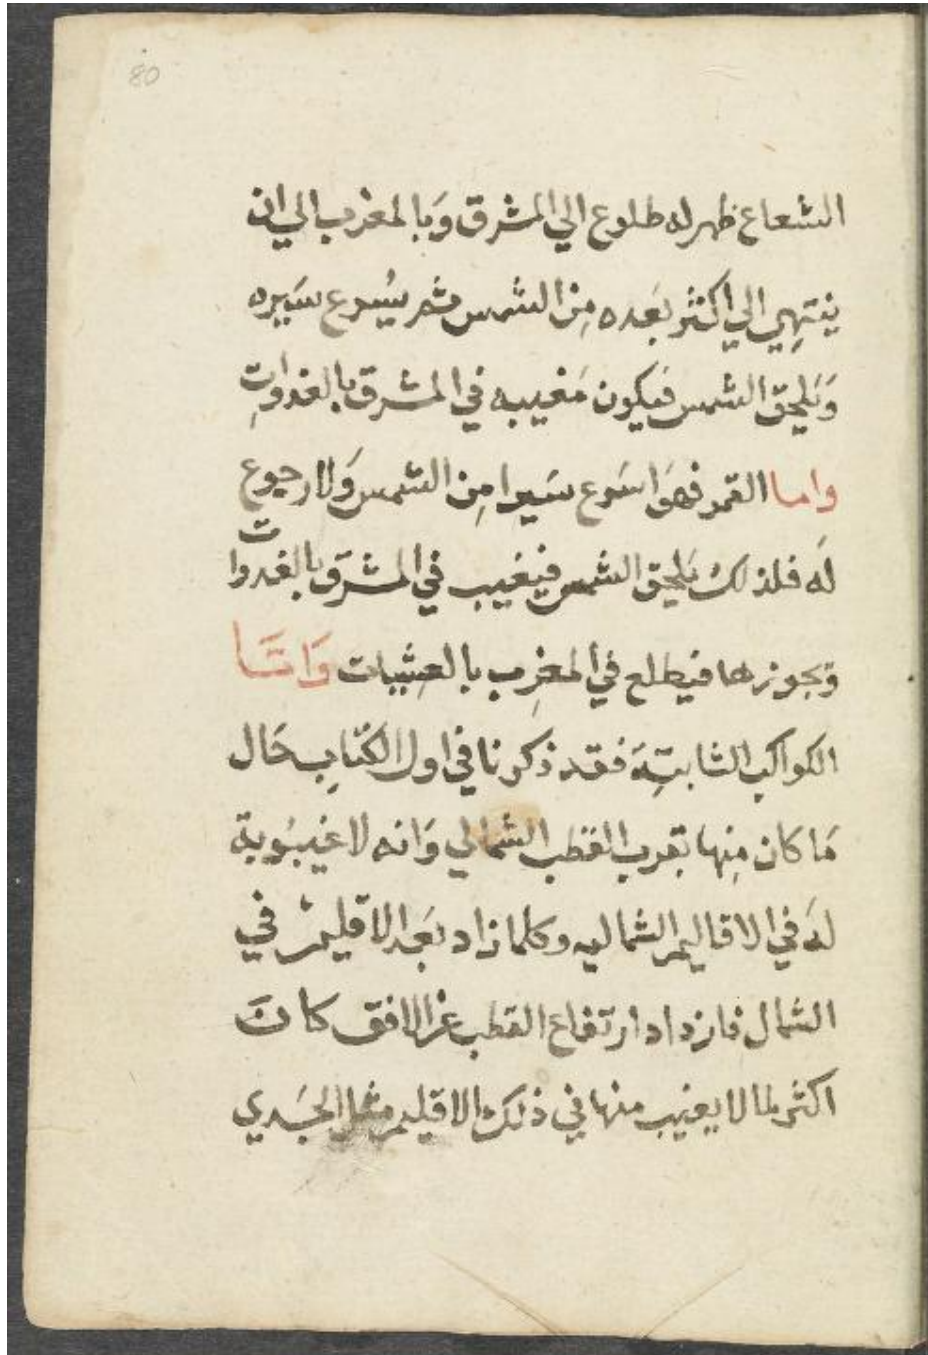 80
الشعاع ظهر له طلوع الي المشرق وَبالمغرب الي ان
ينتهِي الي اكثر بَعده مِن الشمس ثم يسُرع سَيره
وَيَلحق الشمس فيَكون مَغيبه في المشرق بالغدواتِ
واما القمر فهوَ اسَرع سَيرا مِن الشمس وَلا رجوع
لَه فلذلك يَلحق الشمس فيَغيب في المشرق بالغدوات
وَيجوزها فيطلع في المغرِب بالعشِيات وَامَّا
الكواكب الثابتِة فقد ذكرنا في اول الكتابِ حَال
مَا كان مِنها بقرب القطب الشمالي وَانه لا غيبُوبة
لَه في الاقاليم الشماليه وكلما زاد بَعد الاقليم في
الشمال فازداد ارتفاع القطب عن الافق كانَ
اكثر لما لا يغيب منها في ذلك الاقليم مثل الجَدي